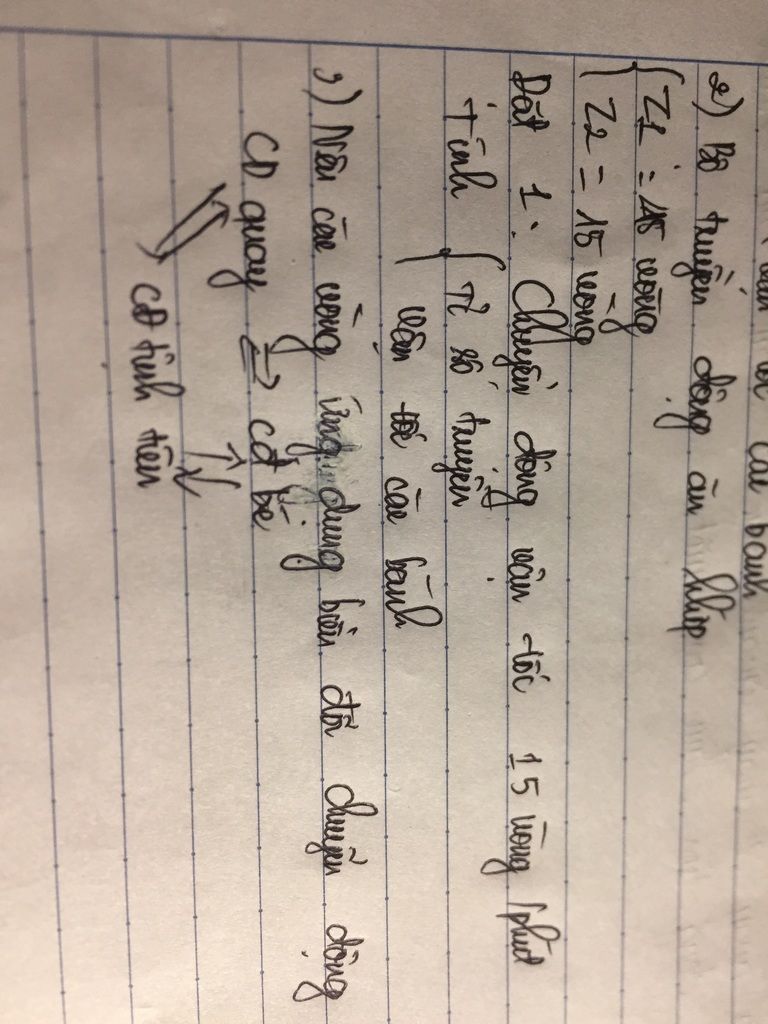 các bánh
2) Bộ truyền động ăn khớp
{ Z1 = 45 vòng
Z2 = 15 vòng
Đặt 1. Chuyển động vận tốc 15 vòng/phút
Tính { Tỉ số truyền
vận tốc các bánh
3) Nêu các vòng ứng dụng biến đổi chuyển động
CĐ quay ⇌ CĐ
CĐ tịnh tiến